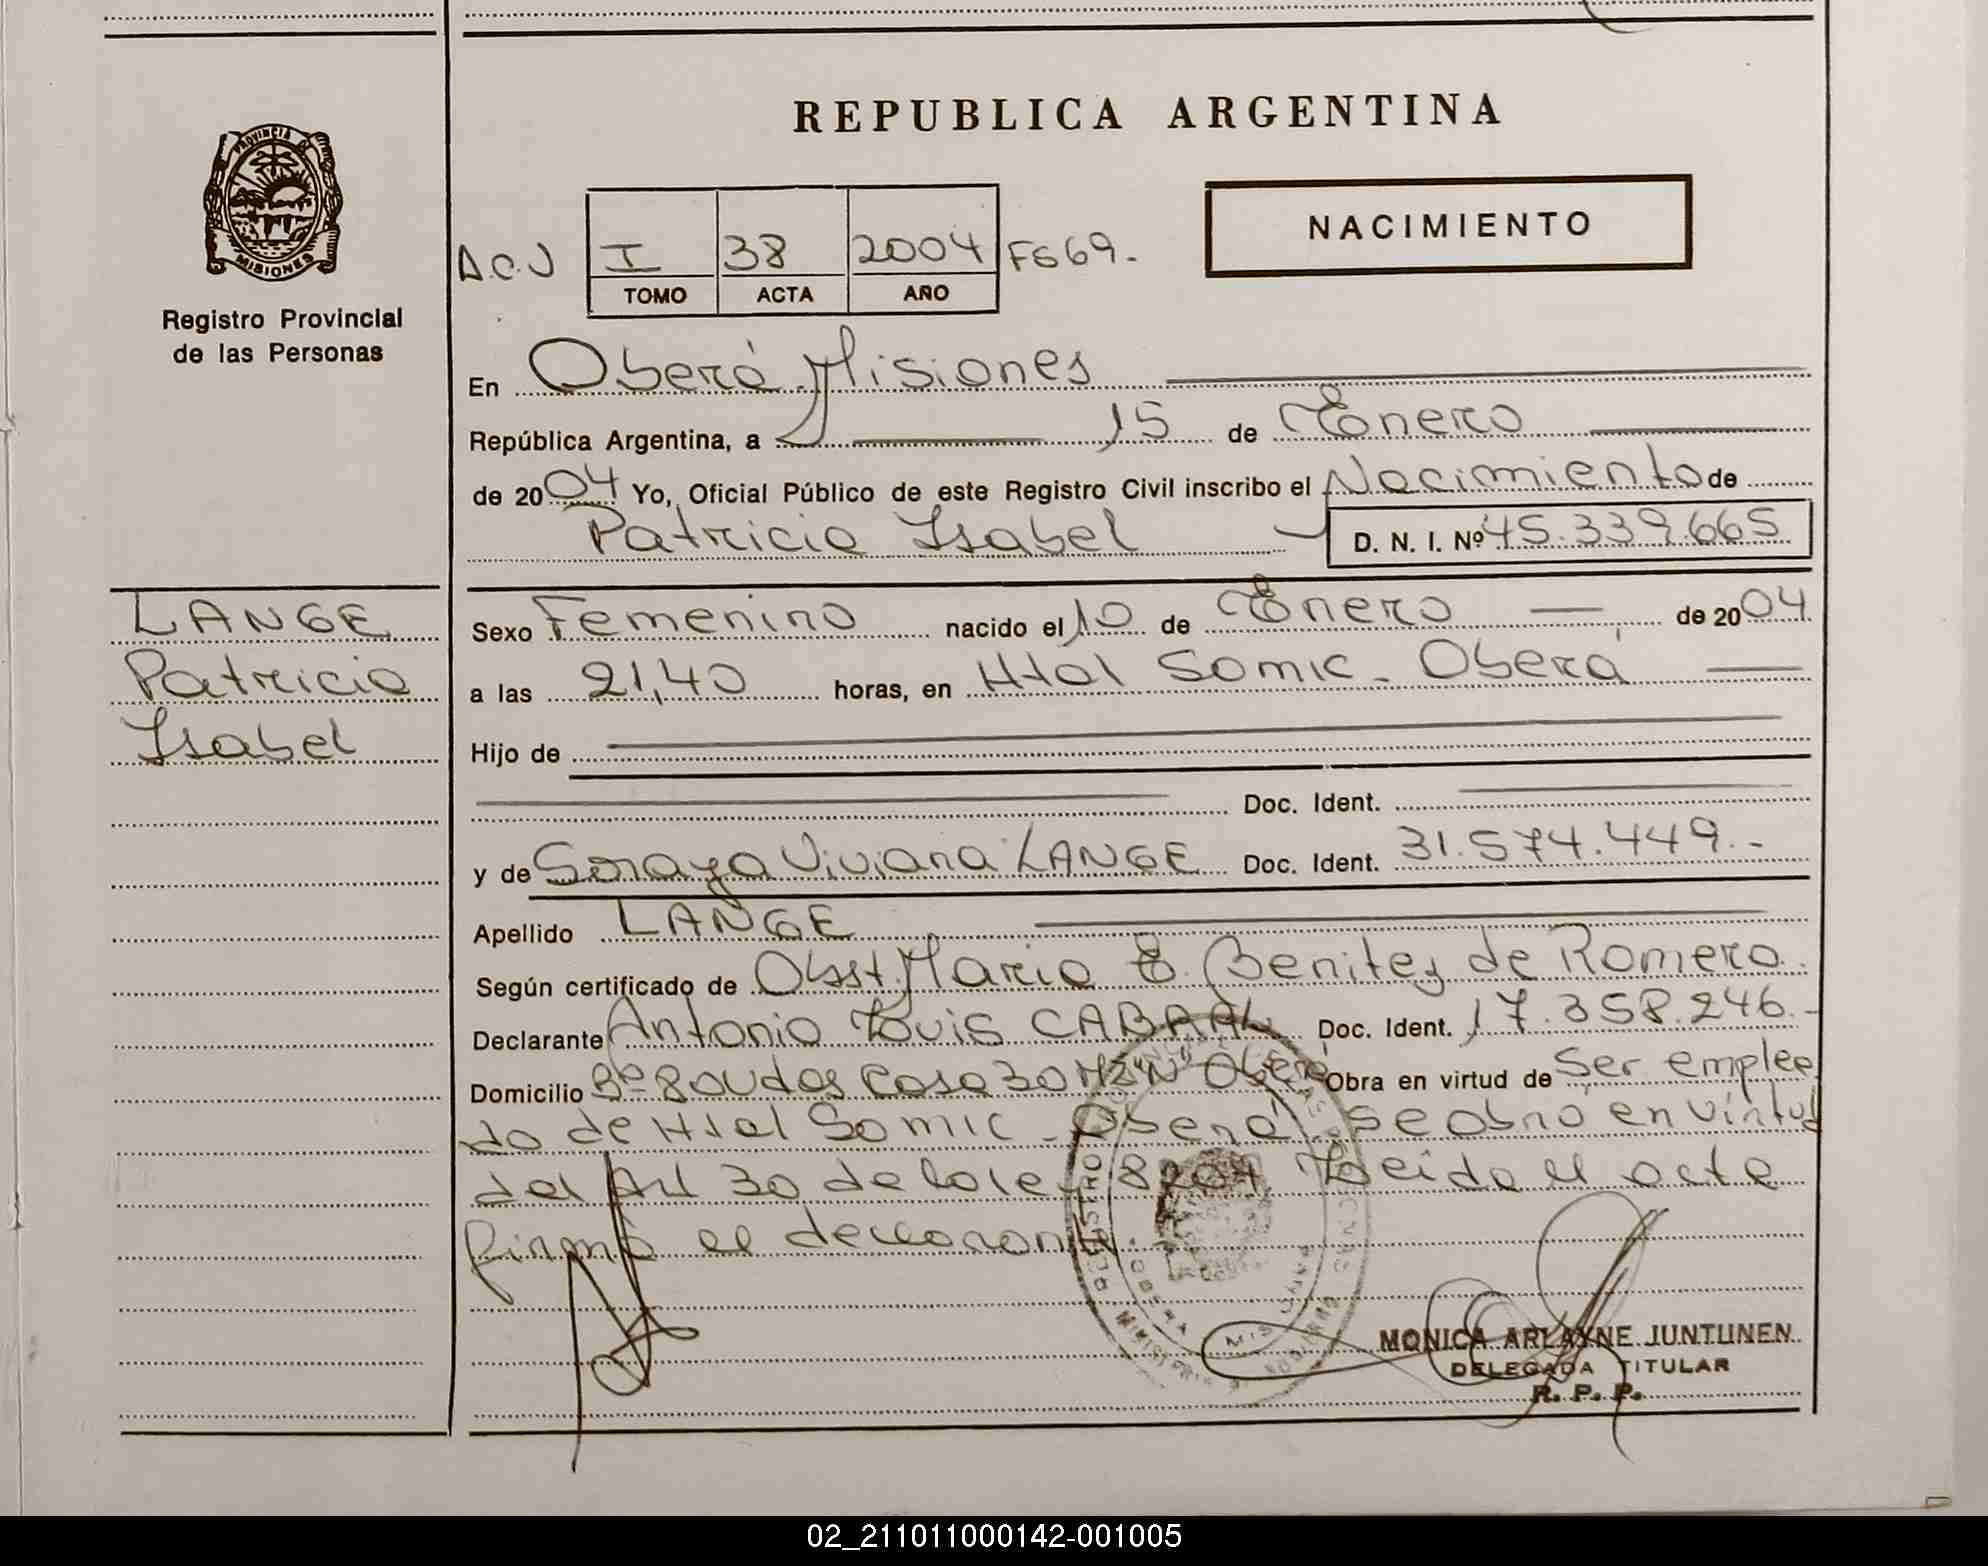 REPUBLICA ARGENTINA
PROVINCIA DE
MISIONES
Registro Provincial
de las Personas
NACIMIENTO
I 38 2004 F569.-
TOMO ACTA AÑO
En Oberá Misiones
República Argentina, a 15 de Enero
de 2004 Yo, Oficial Público de este Registro Civil inscribo el Nacimiento de
Patricia Isabel D. N. I. Nº 45.339.665
LANGE
Patricia
Isabel
Sexo Femenino nacido el 10 de Enero de 2004
a las 21,40 horas, en Htal Somic - Oberá
Hijo de
Doc. Ident.
y de Soraya Viviana LANGE Doc. Ident. 31.574.449.-
Apellido LANGE
Según certificado de Obst. Maria E. Benitez de Romero.
Declarante Antonio Luis CABRAL Doc. Ident. 17.358.246.-
Domicilio Bº 80 Vdas Casa 30 Mz "N" Oberá Obra en virtud de Ser emplea
do de Htal Somic - Oberá se obró en virtud
del Art 30 de la ley 8204 Leida el acta
firmó el declarante.
REGISTRO
OBERA
MONICA ARLAYNE JUNTUNEN
DELEGADA TITULAR
R. P. P.
02_211011000142-001005